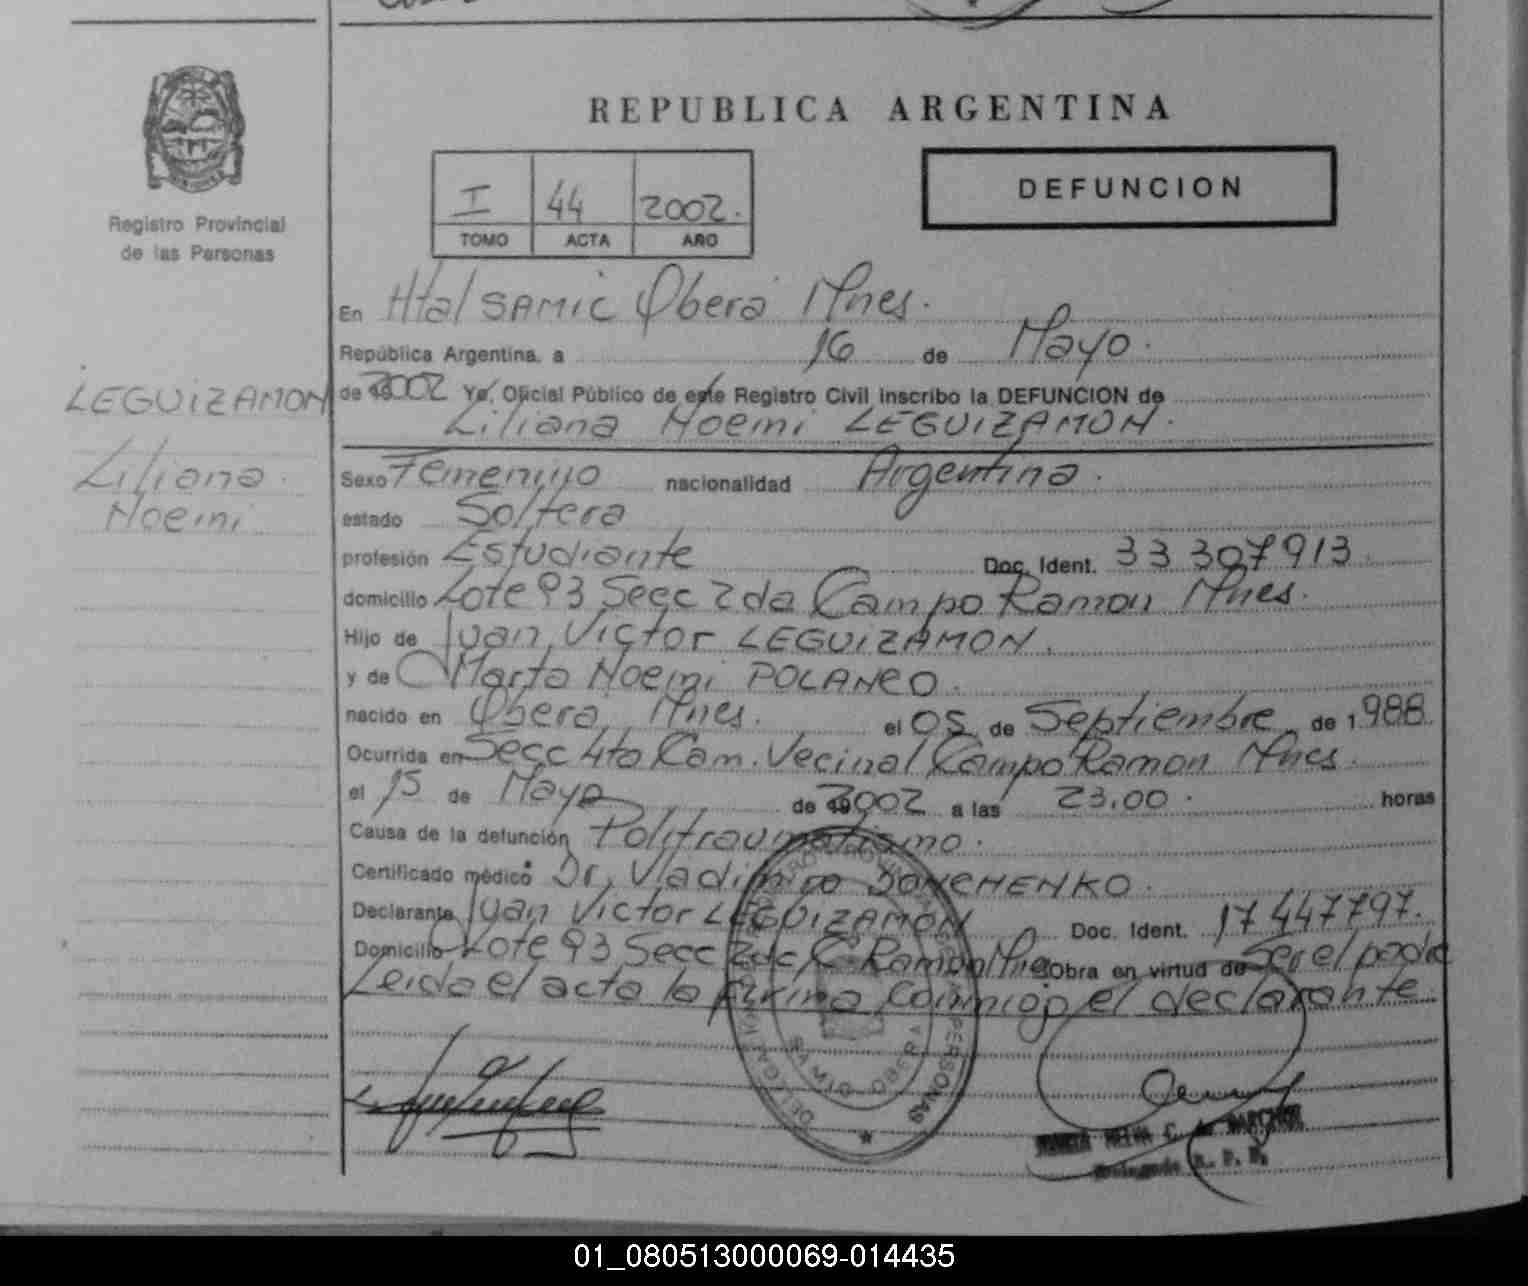 REPUBLICA ARGENTINA
I 44 2002.
TOMO ACTA AÑO
DEFUNCION
Registro Provincial
de las Personas
LEGUIZAMON
Liliana
Noemi
En Htal SAMIC Oberá Mnes.
República Argentina, a 16 de Mayo.
de 2002 Yo, Oficial Público de este Registro Civil inscribo la DEFUNCION de
Liliana Noemi LEGUIZAMON.
Sexo Femenino nacionalidad Argentina.
estado Soltera
profesión Estudiante Doc. Ident. 33 307913.
domicilio Lote 93 Secc 2da Campo Ramon Mnes.
Hijo de Juan Victor LEGUIZAMON.
y de Marta Noemi
nacido en Oberá, Mnes. el 05 de Septiembre de 1.988
Ocurrida en Secc 4ta Cam. Vecinal Campo Ramon Mnes.
el 15 de Mayo de 2002 a las 23.00. horas
Causa de la defunción Politraumatismo.
Certificado médico Dr. Vladimiro
Declarante Juan Victor LEGUIZAMON Doc. Ident. 17 447797.
Domicilio Lote 93 Secc 2da C. Ramon Mnes Obra en virtud de Ser el padre
Leida el acta la firma conmigo el declarante.
PERSONAS
SAMIC OBERA
01_080513000069-014435